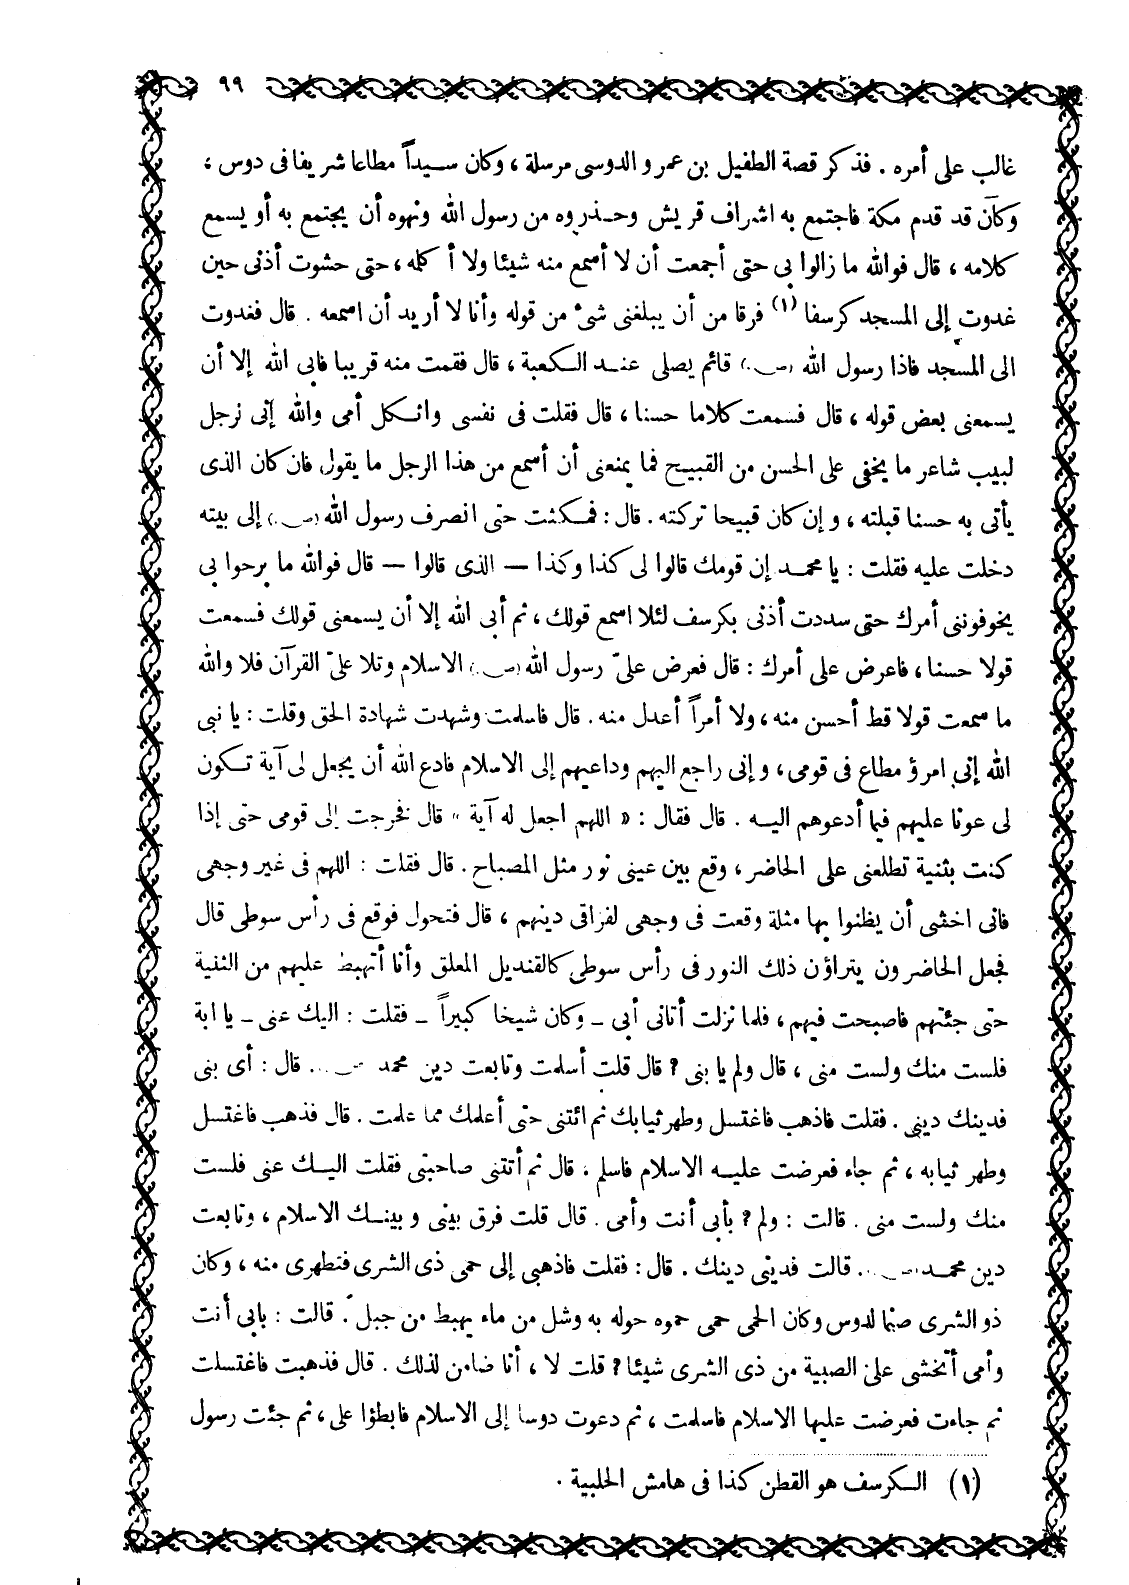 ٩٩
غالب على أمره . فذكر قصة الطفيل بن عمرو الدوسى مرسلة ، وكان سيداً مطاعا شريفا فى دوس ،
وكان قد قدم مكة فاجتمع به اشراف قريش وحذروه من رسول الله ونهوه أن يجتمع به أو يسمع
كلامه ، قال فوالله ما زالوا بى حتى أجمعت أن لا أسمع منه شيئا ولا أكلمه ، حتى حشوت أذنى حين
غدوت إلى المسجد كرسفا (١) فرقا من أن يبلغنى شىء من قوله وأنا لا أريد أن اسمعه . قال فغدوت
الى المسجد فاذا رسول الله (ص) قائم يصلى عند الكعبة ، قال فقمت منه قريبا فابى الله إلا أن
يسمعنى بعض قوله ، قال فسمعت كلاما حسنا ، قال فقلت فى نفسى واثكل أمى والله إنى لرجل
لبيب شاعر ما يخفى على الحسن من القبيح فما يمنعنى أن أسمع من هذا الرجل ما يقول فان كان الذى
يأتى به حسنا قبلته ، وإن كان قبيحا تركته . قال : فمكثت حتى انصرف رسول الله (ص) إلى بيته
دخلت عليه فقلت : يا محمد إن قومك قالوا لى كذا وكذا — الذى قالوا — قال فوالله ما برحوا بى
يخوفوننى أمرك حتى سددت أذنى بكرسف لئلا اسمع قولك ، ثم أبى الله إلا أن يسمعنى قولك فسمعت
قولا حسنا ، فاعرض على أمرك : قال فعرض علىّ رسول الله (ص) الاسلام وتلا علىّ القرآن فلا والله
ما سمعت قولا قط أحسن منه ، ولا أمراً أعدل منه . قال فاسلمت وشهدت شهادة الحق وقلت : يا نبى
الله إنى امرؤ مطاع فى قومى ، وإنى راجع اليهم وداعيهم إلى الاسلام فادع الله أن يجعل لى آية تكون
لى عونا عليهم فيما أدعوهم اليه . قال فقال : « اللهم اجعل له آية » قال فخرجت إلى قومى حتى إذا
كنت بثنية تطلعنى على الحاضر ، وقع بين عينى نور مثل المصباح . قال فقلت : اللهم فى غير وجهى
فانى اخشى أن يظنوا بها مثلة وقعت فى وجهى لفراقى دينهم ، قال فتحول فوقع فى رأس سوطى قال
فجعل الحاضرون يتراؤن ذلك النور فى رأس سوطى كالقنديل المعلق وأنا أتهبط عليهم من الثنية
حتى جئتهم فاصبحت فيهم ، فلما نزلت أتانى أبى – وكان شيخا كبيراً – فقلت : اليك عنى – يا ابة
فلست منك ولست منى ، قال ولم يا بنى ؟ قال قلت أسلمت وتابعت دين محمد ص . قال : أى بنى
فدينك دينى . فقلت فاذهب فاغتسل وطهر ثيابك ثم ائتنى حتى أعلمك مما علمت . قال فذهب فاغتسل
وطهر ثيابه ، ثم جاء فعرضت عليه الاسلام فاسلم ، قال ثم أتتنى صاحبتى فقلت اليك عنى فلست
منك ولست منى . قالت : ولم ؟ بأبى أنت وأمى . قال قلت فرق بينى وبينك الاسلام ، وتابعت
دين محمد (ص) . قالت فدينى دينك . قال : فقلت فاذهبى إلى حمى ذى الشرى فتطهرى منه ، وكان
ذو الشرى صنما لدوس وكان الحمى حمى حموه حوله به وشل من ماء يهبط من جبل . قالت : بابى أنت
وأمى أتخشى على الصبية من ذى الشرى شيئا ؟ قلت لا ، أنا ضامن لذلك . قال فذهبت فاغتسلت
ثم جاءت فعرضت عليها الاسلام فاسلمت ، ثم دعوت دوسا إلى الاسلام فابطؤا على ، ثم جئت رسول
(١) الكرسف هو القطن كذا فى هامش الحلبية .